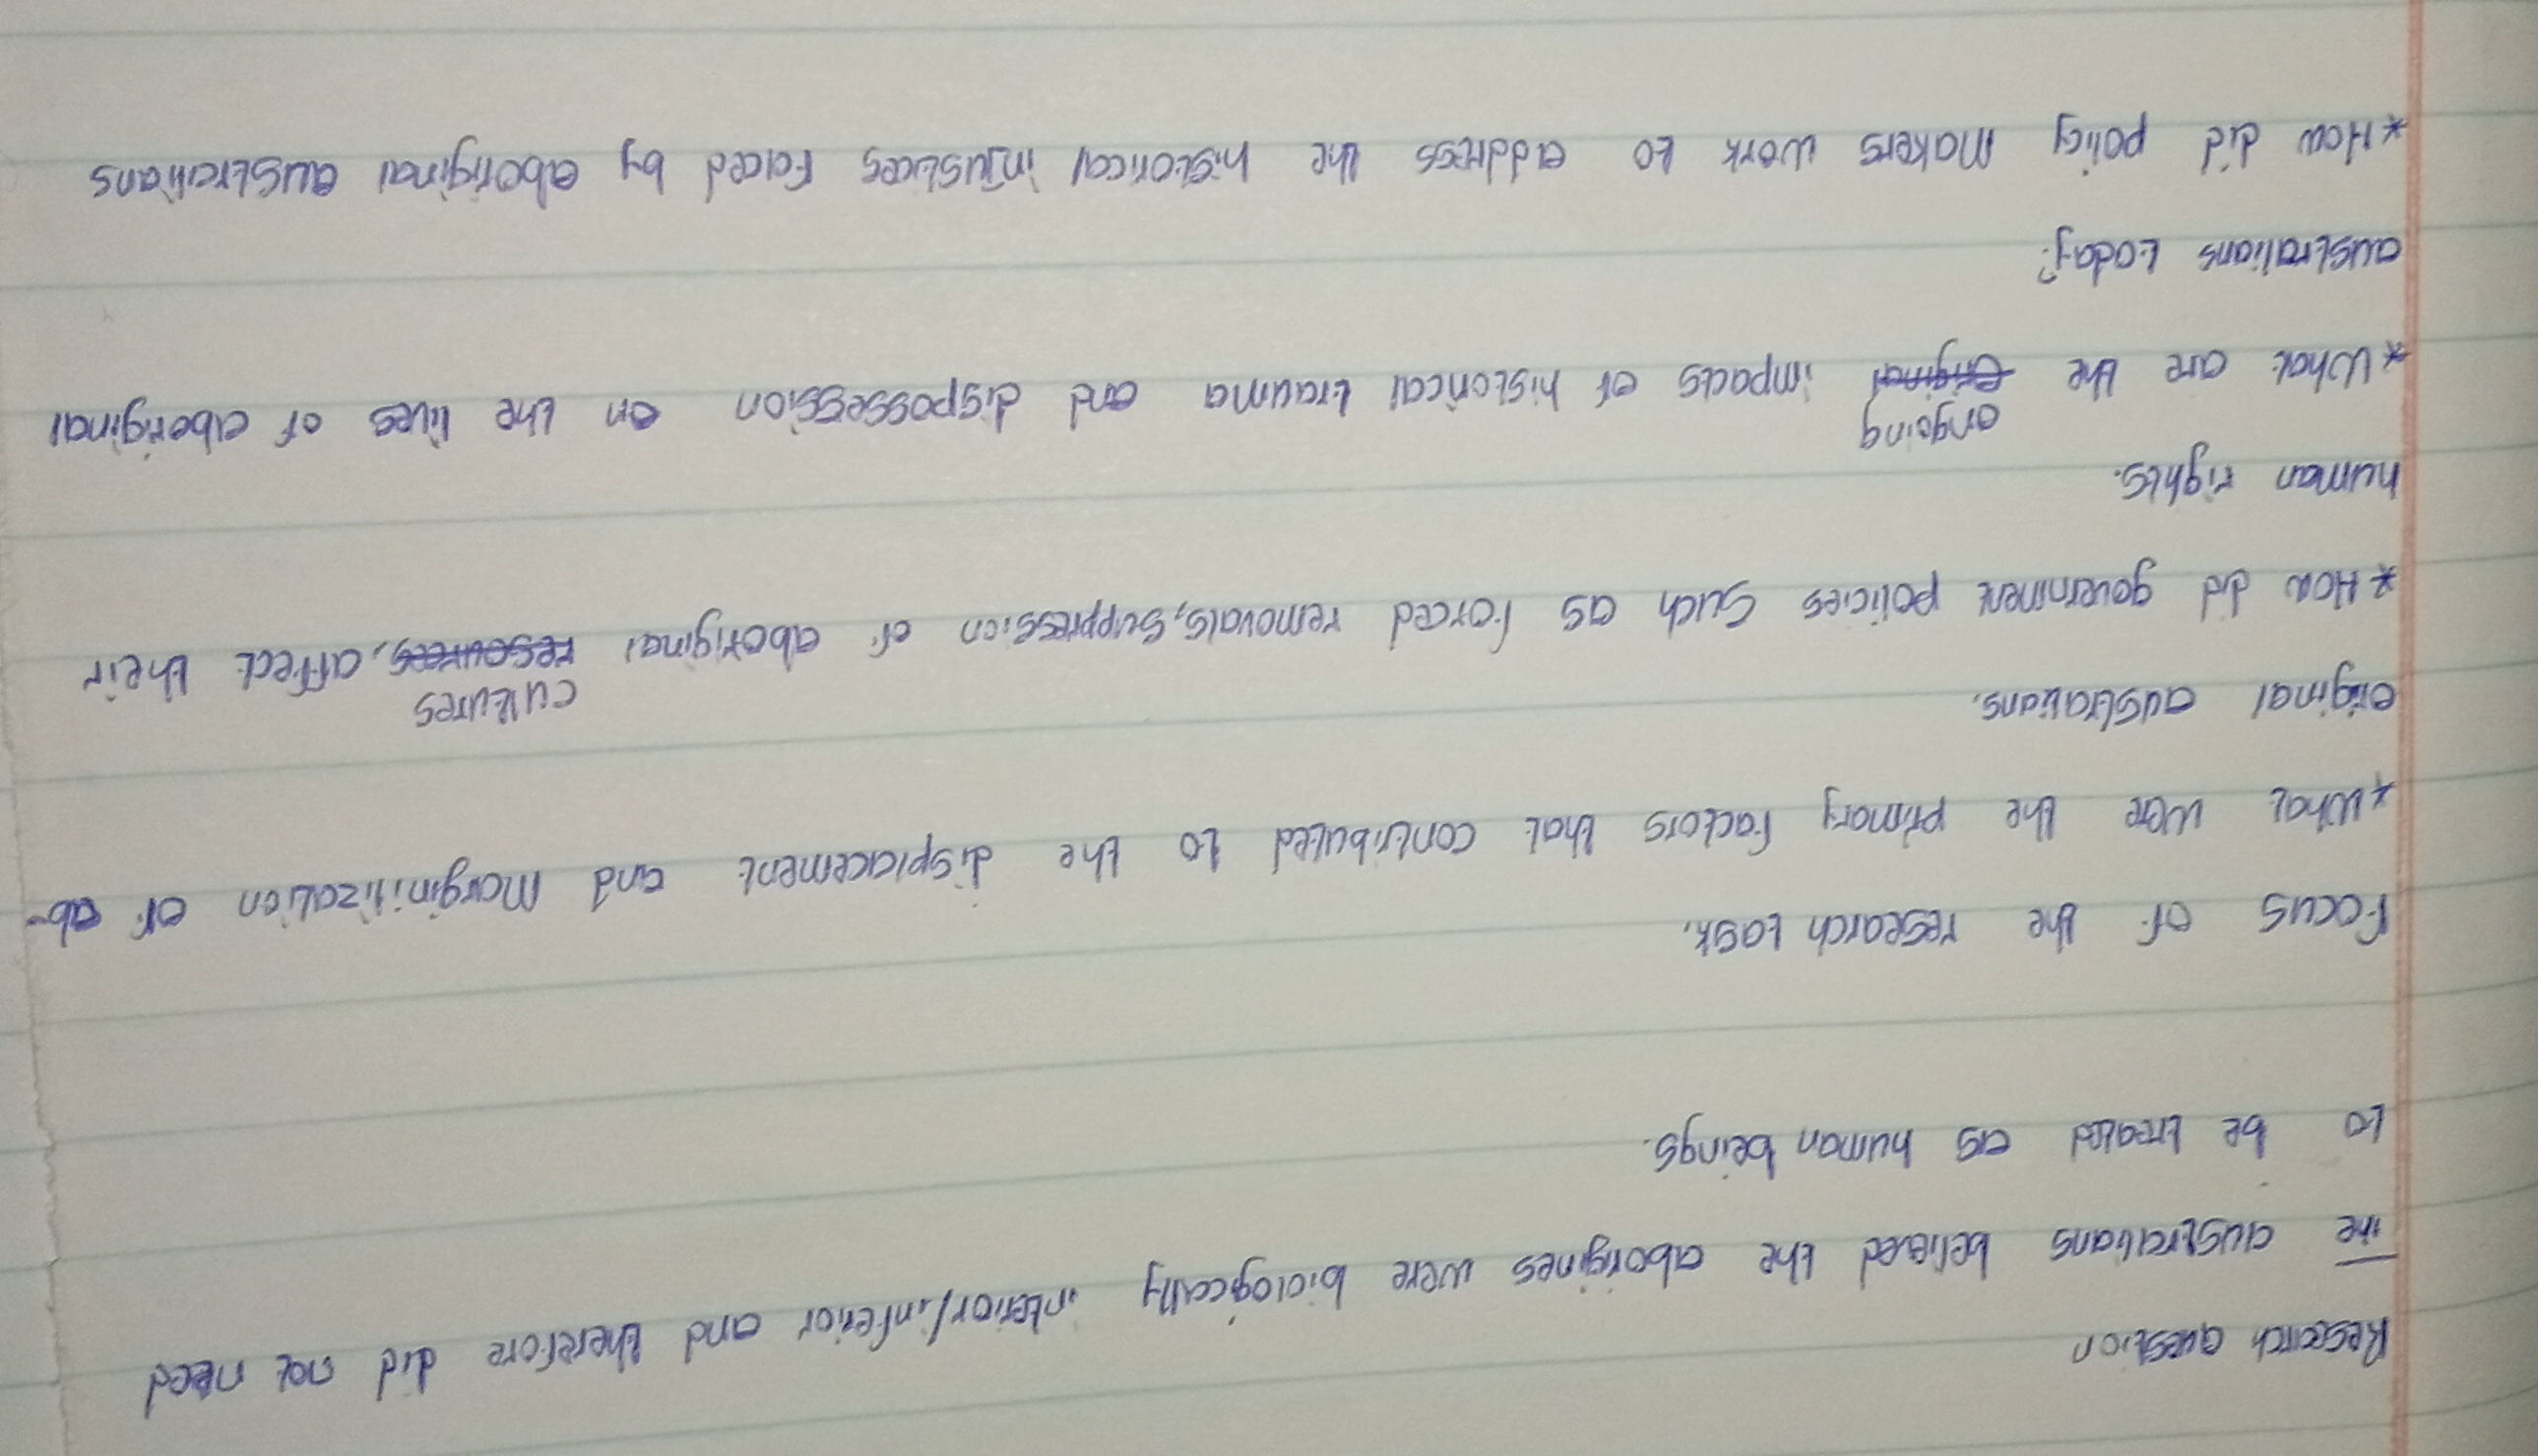 Research question
The australians believed the aborigines were biologically interior/inferior and therefore did not need
to be treated as human beings.
Focus of the research task.
*What were the primary factors that contributed to the displacement and marginilization of ab-
original australians.
cultures
*How did government policies such as forced removals, suppression of aboriginal resources, affect their
human rights.
ongoing
*What are the original impacts of historical trauma and dispossession on the lives of aboriginal
australians today?
*How did policy makers work to address the historical injustices faced by aboriginal australians